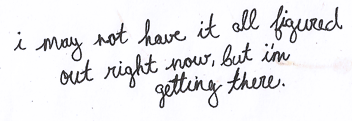 i may not have it all figured
out right now, but i'm
getting there.